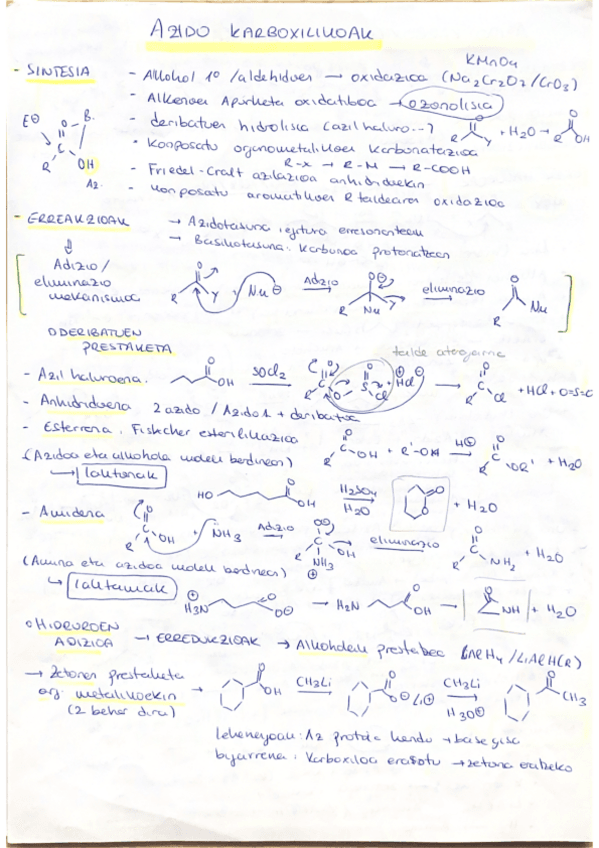 AZIDO KARBOXILIKOAK
KMnO4
- SINTESIA - Alkohol 1º / aldehidoen → oxidazioa (Na2Cr2O7 / CrO3)
- Alkenoen Apurketa oxidatiboa → ozonolisia
- deribatuen hidrolisia (azil haluro...)
- Konposatu organometalikoen karbonatazioa
R-X → R-M → R-COOH
- Friedel-Craft azilazioa anhidridoekin
- Konposatu aromatikoen R taldearen oxidazioa
E⊕ O B.
R C OH
Az.
R Y + H2O → R OH
- ERREAKZIOAK → Azidotasuna
→ Basikotasuna: karbonoa protonatzean
Adizio / eliminazio mekanismoa
R Y Nu⊖ Adizio R Nu Y eliminazio R Nu
DERIBATUEN PRESTAKETA
talde aterakorra
- Azil haluroena. OH SOCl2 R C O S Cl + HCl → R C Cl + HCl + O=S=O
- Anhidridoena 2 azido / Azido 1 + deribatua
- Esterrena. Fischer esterifikazioa
(Azidoa eta alkohola molek berdinean) R C OH + R'-OH H⊕ → R C OR' + H2O
→ laktonak
HO OH H2SO4 H2O O + H2O
- Amidena R C OH + NH3 Adizio R C OH NH3 ⊕ eliminazio R C NH2 + H2O
(Amina eta azidoa molek berdinean)
→ laktamak
⊕ H3N O⊖ → H2N OH → NH + H2O
HIDRUROEN ADIZIOA → ERREDUKZIOAK → Alkoholak prestatzeko (LiAlH4 / LiAlH(R)
→ Zetonen prestaketa
org. metalikoekin
(2 behar dira)
OH CH3Li O⊖ Li⊕ CH3Li H3O⊕ CH3
Lehenengoan: Az protoia kendu → base gisa
bigarrena: Karboxiloa erasotu → zetona eratzeko